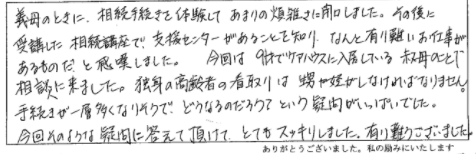 義母のときに、相続手続きを体験して あまりの煩雑さに閉口しました。その後に
受講した相続講座で、支援センターがあることを知り、なんと有り難いお仕事が
あるものだと感嘆しました。 今回は 91才でケアハウスに入居している 叔母のことで
相談に来ました。独身の高齢者の看取りは 甥や姪がしなければなりません。
手続きが一層多くなりそうで、どうなるのだろうか という疑問がいっぱいでした。
今回そのような疑問に答えて頂けて、とてもスッキリしました。有り難うございました
ありがとうございました。私の励みにいたします